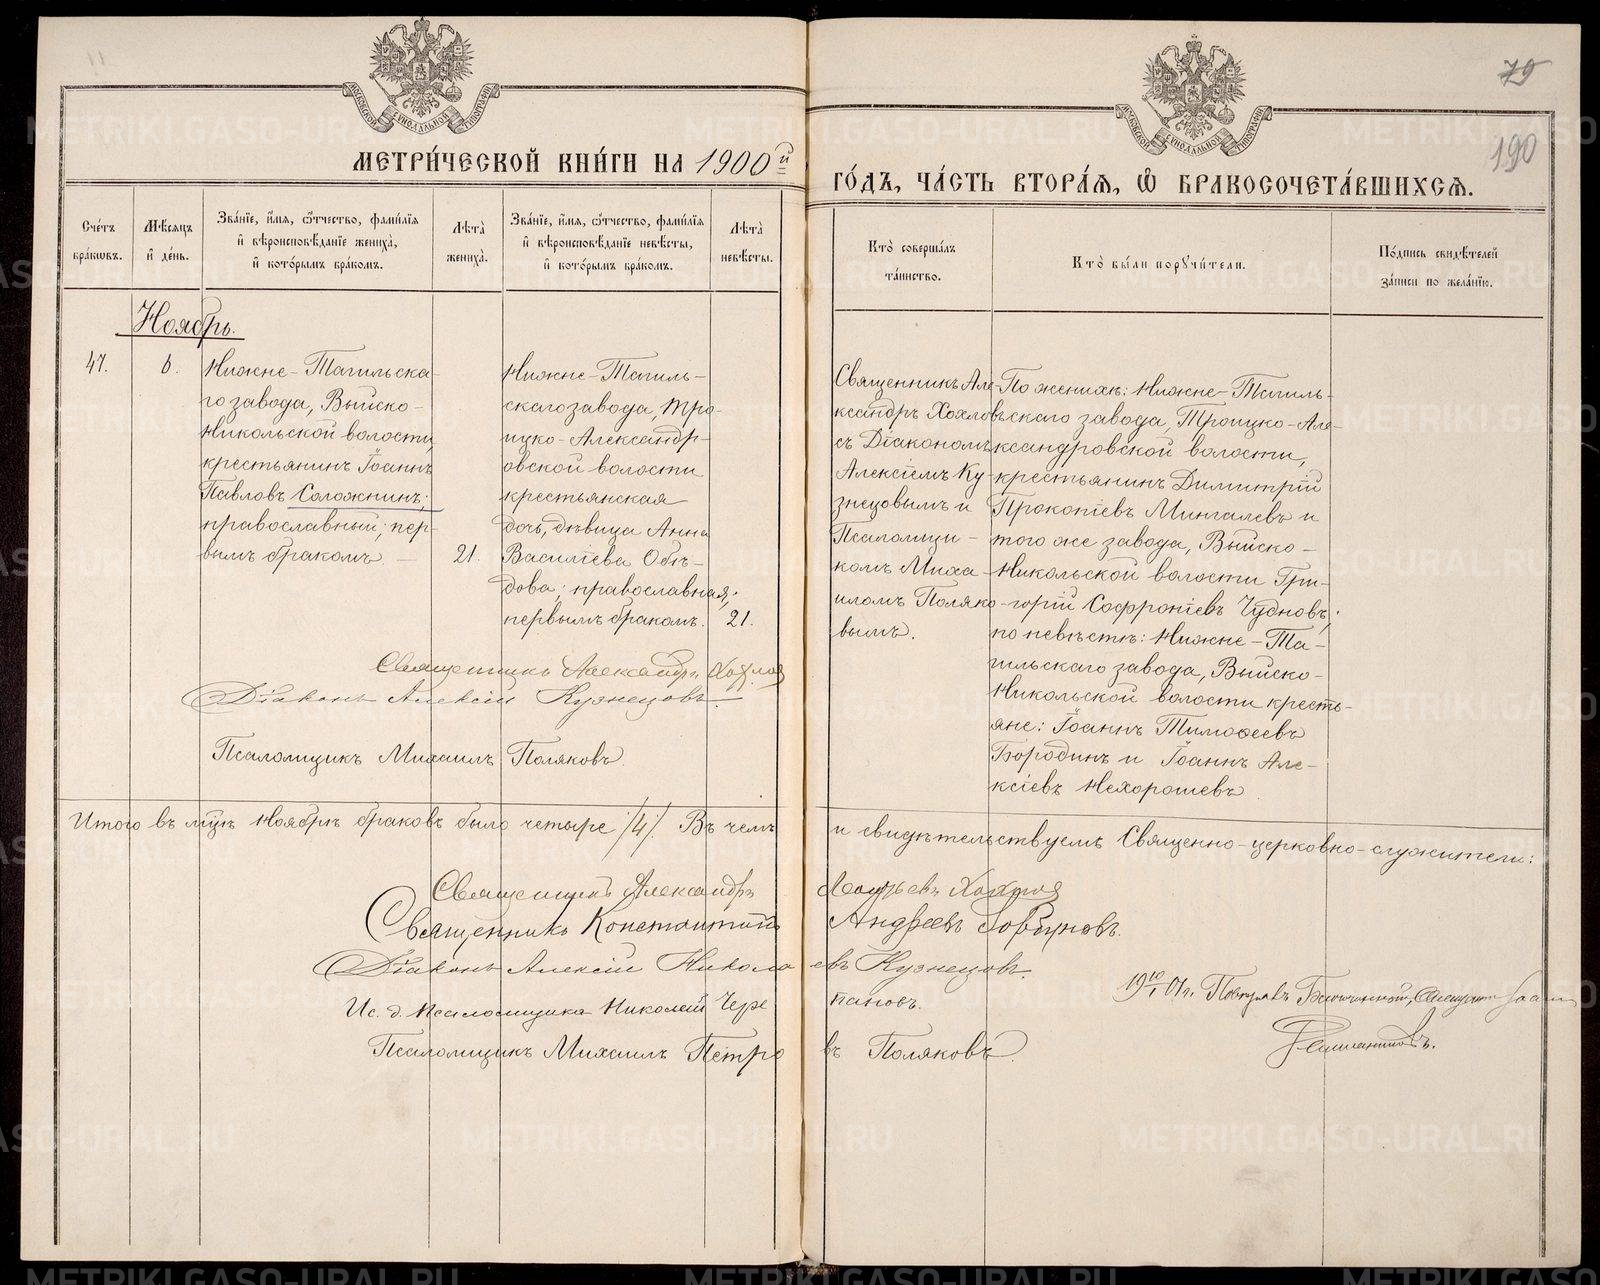 79
190
МОСКОВСКОЙ СѴНОДАЛЬНОЙ ТИПОГРАФІИ
МОСКОВСКОЙ СѴНОДАЛЬНОЙ ТИПОГРАФІИ
МЕТРИ́ЧЕСКОЙ КНИ́ГИ НА 1900й
ГО́ДЪ, ЧА́СТЬ ВТОРА́Я, Ѽ БРАКОСОЧЕТА́ВШИХСЯ.
Сче́тъ бра́кѡвъ.
Мѣ́сяцъ и҆ де́нь.
Зва́нїе, и҆́мя, ѻ҆́тчество, фами́лїя
и҆ вѣроисповѣ́данїе жениха̀,
и҆ кото́рымъ бра́комъ.
Лѣта̀ жениха̀.
Зва́нїе, и҆́мя, ѻ҆́тчество, фами́лїя
и҆ вѣроисповѣ́данїе невѣ́сты,
и҆ кото́рымъ бра́комъ.
Лѣта̀ невѣ́сты.
Кто̀ соверша́лъ
та́инство.
Кто̀ бы́ли порꙋчи́тели.
По́дпись свидѣ́телей
за́писи по жела́нїю.
Ноябрь.
47.
6.
Нижне-Тагильска-
го завода, Выйско-
Никольской волости,
крестьянинъ Іоаннъ
Павловъ Соложнинъ;
православный; пер-
вымъ бракомъ —
21.
Нижне-Тагиль-
скаго завода, Тро-
ицко-Александр-
овской волости
крестьянская
дочь, дѣвица Анна
Василіева Обѣ-
дова; православная;
первымъ бракомъ.
21.
Священникъ Але-
ксандръ Хохловъ
съ Діакономъ
Алексіемъ Ку-
знецовымъ и
Псаломщи-
комъ Миха-
иломъ Поляко-
вымъ.
По женихѣ: Нижне-Тагиль-
скаго завода, Троицко-Але-
ксандровской волости,
крестьянинъ Димитрій
Прокопіевъ Мингалевъ и
того же завода, Выйско-
Никольской волости Гри-
горій Софроніевъ Чудновъ;
по невѣстѣ: Нижне-Та-
гильскаго завода, Выйско-
Никольской волости кресть-
яне: Іоаннъ Тимоѳеевъ
Бородинъ и Іоаннъ Але-
ксіевъ Нехорошевъ
Священникъ Александръ Хохлов
Діаконъ Алексій Кузнецовъ.
Псаломщикъ Михаилъ Поляковъ.
Итого въ мцѣ Ноябрѣ браковъ было четыре /4/. Въ чемъ
и свидѣтельствуемъ Священно-церковно-служители:
Священникъ Александръ Хохлов
Священникъ Константинъ Андреевъ Горбуновъ.
Діаконъ Алексій Николаевъ Кузнецовъ.
Ис. д. псаломщика Николай Черепановъ.
Псаломщикъ Михаилъ Петровъ Поляковъ.